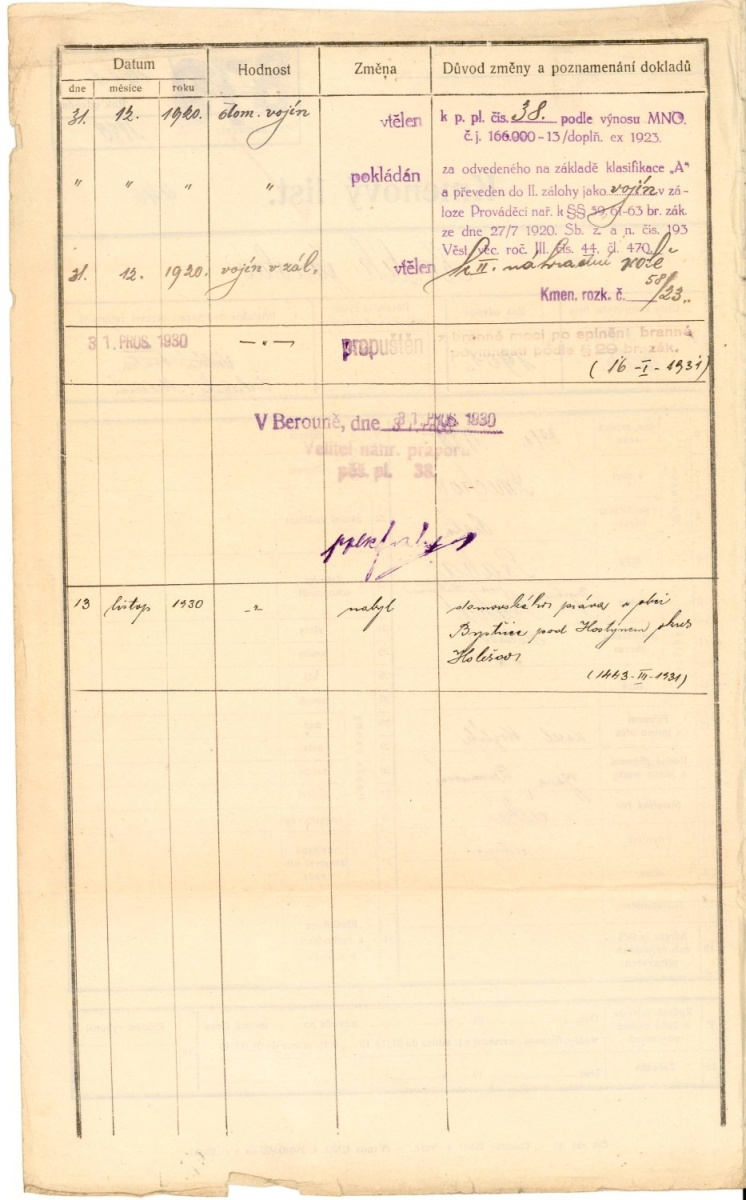 Datum
Hodnost
Změna
Důvod změny a poznamenání dokladů
dne
měsíce
roku
31. 12. 1920. dom. vojín vtělen k p. pl. čís. 38. podle výnosu MNO.
č. j. 166.000-13/doplň. ex 1923.
" " " " pokládán za odvedeného na základě klasifikace „A"
a převeden do II. zálohy jako vojín v zá-
loze Prováděcí nař. k §§ 59, 61-63 br. zák.
ze dne 27/7 1920. Sb. z. a n. čís. 193
Věst. věc. roč. III. čís. 44, čl. 470.
31. 12. 1920. vojín v zál. vtělen k II. náhradní rotě
Kmen. rozk. č. 58/23.
31. PROS. 1930 -"- propuštěn z branné moci po splnění branné
povinnosti podle § 20 br. zák.
(16-I-1931)
V Berouně, dne 31. PROS. 1930
Velitel náhr. praporu
pěš. pl. 38.
13 listop 1930 -"- nabyl domovského práva v obci
Bystřice pod Hostýnem okres
Holešov
(1443-III-1931)